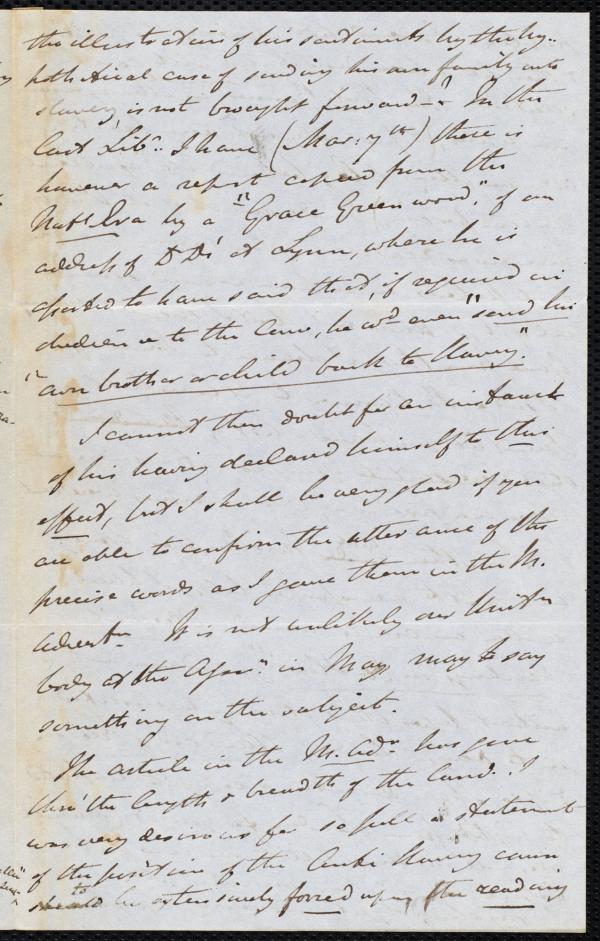 the illustration of his sentiments by the hy-
pothetical case of sending his own family into
slavery, is not brought forward — & In the
last Libr. I have (Mar: 7th) there is
however a report copied from the
Natl Era by a "Grace Greenwood," of an
address of Dr D's at Lynn, where he is
asserted to have said that, if required in
obedience to the law, he wd even "send his
"own brother or child back to Slavery."
I cannot then doubt for an instant
of his having declared himself to this
effect, but I shall be very glad if you
are able to confirm the utterance of the
precise words as I gave them in the M.
Advertr. It is not unlikely our Unitn
body at the Assn. in May, may say
something on the subject.
The article in the M. Adr has gone
thro' the length & breadth of the land. I
was very desirous for so full a statement
of the position of the Anti Slavery cause
to be extensively forced upon the reading